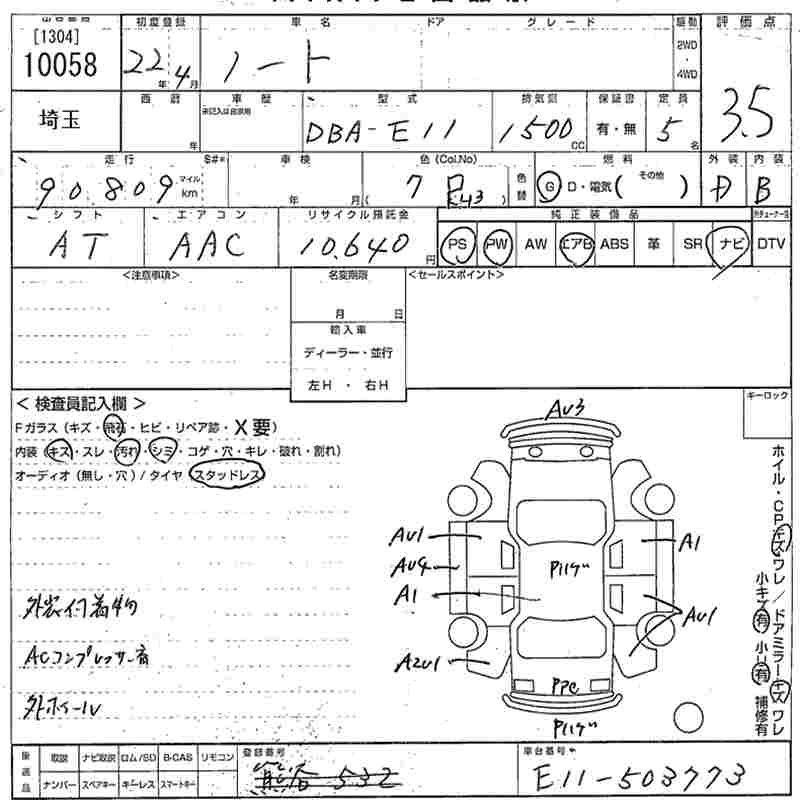 [1304]
10058
埼玉
初度登録 22年 4月
車名 ノート
ドア
グレード
駆動 2WD・4WD
評価点 3.5
西暦 年
車歴
未記入は自家用
型式 DBA-E11
排気量 1500 CC
保証書 有・無
定員 5名
走行 90809 マイル km
S#*
車検 年 月
色(Col.No) 7
色替
燃料 G D・電気( その他 )
外装 D
内装 B
シフト AT
エアコン AAC
リサイクル預託金 10,640 円
純正装備品
PS PW AW エアB ABS 革 SR ナビ DTV
<注意事項>
名変期限
月 日
輸入車
ディーラー・並行
左H ・ 右H
<セールスポイント>
キーロック
< 検査員記入欄 >
Fガラス(キズ・飛石・ヒビ・リペア跡・X要)
内装(キズ・スレ・汚れ・シミ・コゲ・穴・キレ・破れ・割れ)
オーディオ(無し・穴)/タイヤ(スタッドレス)
外装付着物
ACコンプレッサー音
外ホイール
AU3
AU1
A1
AU4
A1
AU1
A2U1
PPC
ホイル・CPキズワレ/ドアミラーキズワレ
小キズ有 小凹有 補修有
後送品
取説 ナビ取説 ロム/SD B-CAS リモコン
ナンバー スペアキー キーレス スマートキー
登録番号
熊谷 532
車台番号
E11-503773